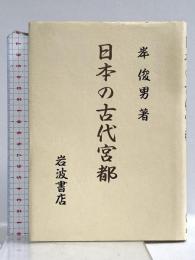 岸 俊男 著
日本の古代宮都
岩波書店